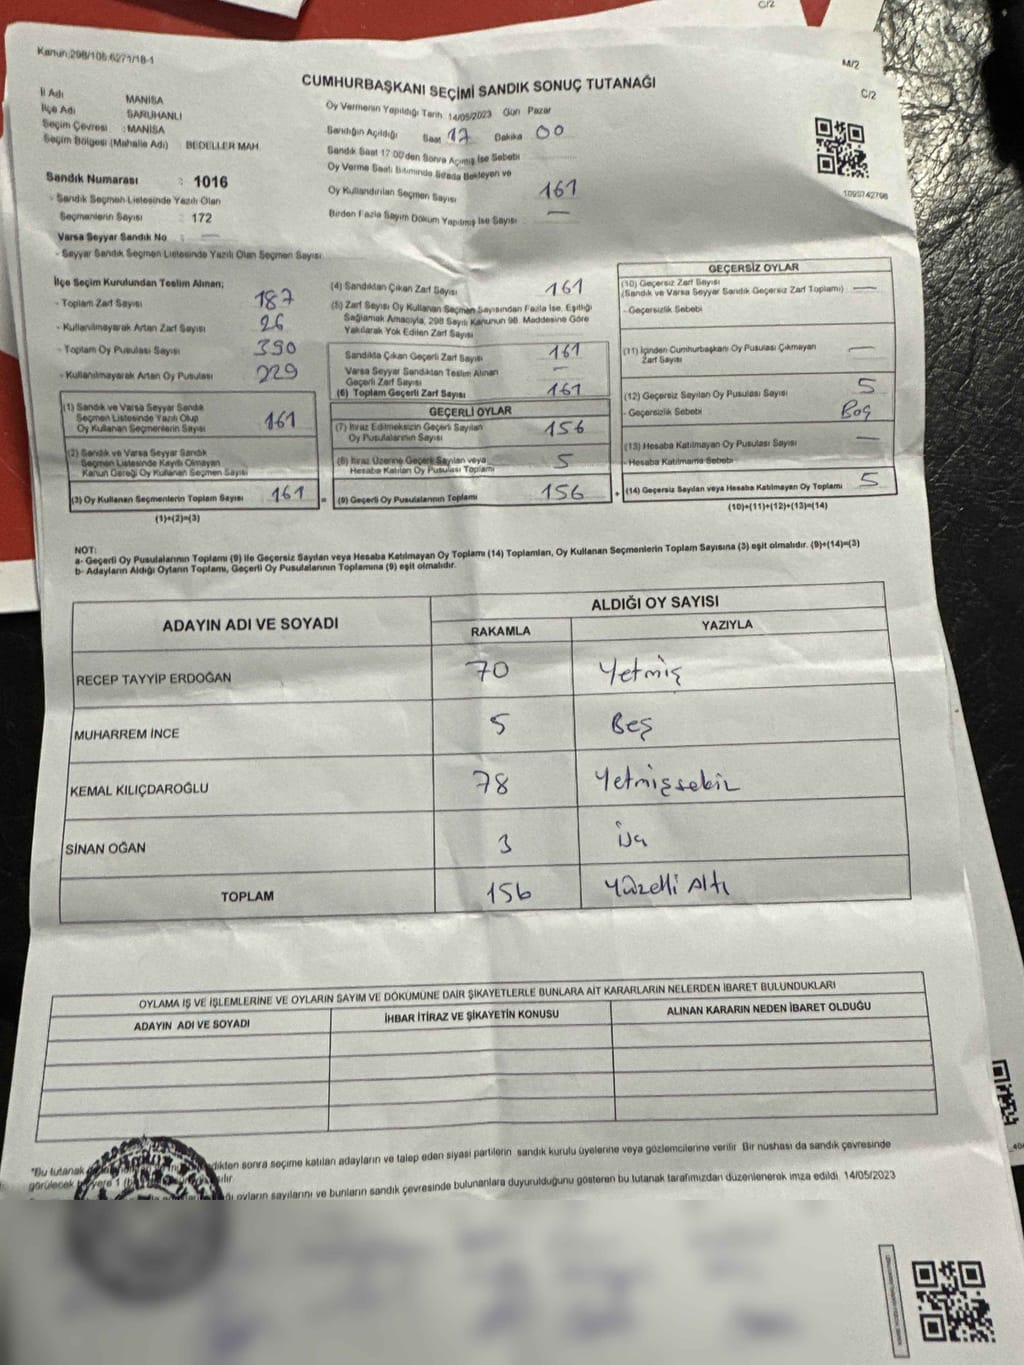 C/2
Kanun:298/106.6271/18-1
M/2
C/2
CUMHURBAŞKANI SEÇİMİ SANDIK SONUÇ TUTANAĞI
İl Adı MANİSA
İlçe Adı SARUHANLI
Seçim Çevresi : MANİSA
Seçim Bölgesi (Mahalle Adı) BEDELLER MAH.
Oy Vermenin Yapıldığı Tarih 14/05/2023 Gün Pazar
Sandığın Açıldığı Saat 17 Dakika 00
Sandık Saat 17:00'den Sonra Açılmış İse Sebebi
Oy Verme Saati Bitiminde Sırada Bekleyen ve
Oy Kullandırılan Seçmen Sayısı 161
Birden Fazla Sayım Döküm Yapılmış İse Sayısı —
1095742798
Sandık Numarası : 1016
- Sandık Seçmen Listesinde Yazılı Olan
Seçmenlerin Sayısı : 172
Varsa Seyyar Sandık No : —
- Seyyar Sandık Seçmen Listesinde Yazılı Olan Seçmen Sayısı
İlçe Seçim Kurulundan Teslim Alınan;
- Toplam Zarf Sayısı 187
- Kullanılmayarak Artan Zarf Sayısı 26
- Toplam Oy Pusulası Sayısı 390
- Kullanılmayarak Artan Oy Pusulası 229
(1) Sandık ve Varsa Seyyar Sandık
Seçmen Listesinde Yazılı Olup
Oy Kullanan Seçmenlerin Sayısı 161
(2) Sandık ve Varsa Seyyar Sandık
Seçmen Listesinde Kayıtlı Olmayan
Kanun Gereği Oy Kullanan Seçmen Sayısı
(3) Oy Kullanan Seçmenlerin Toplam Sayısı 161 =
(1)+(2)=(3)
(4) Sandıktan Çıkan Zarf Sayısı 161
(5) Zarf Sayısı Oy Kullanan Seçmen Sayısından Fazla İse, Eşitliği
Sağlamak Amacıyla, 298 Sayılı Kanunun 98. Maddesine Göre
Yakılarak Yok Edilen Zarf Sayısı
Sandıkta Çıkan Geçerli Zarf Sayısı 161
Varsa Seyyar Sandıktan Teslim Alınan
Geçerli Zarf Sayısı —
(6) Toplam Geçerli Zarf Sayısı 161
GEÇERLİ OYLAR
(7) İtiraz Edilmeksizin Geçerli Sayılan
Oy Pusulalarının Sayısı 156
(8) İtiraz Üzerine Geçerli Sayılan veya
Hesaba Katılan Oy Pusulası Toplamı 5
(9) Geçerli Oy Pusulalarının Toplamı 156 +
GEÇERSİZ OYLAR
(10) Geçersiz Zarf Sayısı
(Sandık ve Varsa Seyyar Sandık Geçersiz Zarf Toplamı) —
- Geçersizlik Sebebi
(11) İçinden Cumhurbaşkanı Oy Pusulası Çıkmayan
Zarf Sayısı —
(12) Geçersiz Sayılan Oy Pusulası Sayısı 5
- Geçersizlik Sebebi Boş
(13) Hesaba Katılmayan Oy Pusulası Sayısı —
- Hesaba Katılmama Sebebi
(14) Geçersiz Sayılan veya Hesaba Katılmayan Oy Toplamı 5
(10)+(11)+(12)+(13)=(14)
NOT:
a- Geçerli Oy Pusulalarının Toplamı (9) ile Geçersiz Sayılan veya Hesaba Katılmayan Oy Toplamı (14) Toplamları, Oy Kullanan Seçmenlerin Toplam Sayısına (3) eşit olmalıdır. (9)+(14)=(3)
b- Adayların Aldığı Oyların Toplamı, Geçerli Oy Pusulalarının Toplamına (9) eşit olmalıdır.
ADAYIN ADI VE SOYADI ALDIĞI OY SAYISI
RAKAMLA YAZIYLA
RECEP TAYYİP ERDOĞAN 70 Yetmiş
MUHARREM İNCE 5 Beş
KEMAL KILIÇDAROĞLU 78 Yetmişsekiz
SİNAN OĞAN 3 Üç
TOPLAM 156 Yüzelli Altı
OYLAMA İŞ VE İŞLEMLERİNE VE OYLARIN SAYIM VE DÖKÜMÜNE DAİR ŞİKAYETLERLE BUNLARA AİT KARARLARIN NELERDEN İBARET BULUNDUKLARI
ADAYIN ADI VE SOYADI İHBAR İTİRAZ VE ŞİKAYETİN KONUSU ALINAN KARARIN NEDEN İBARET OLDUĞU
*Bu tutanak dikten sonra seçime katılan adayların ve talep eden siyasi partilerin sandık kurulu üyelerine veya gözlemcilerine verilir. Bir nüshası da sandık çevresinde
görülecek
oyların sayılarını ve bunların sandık çevresinde bulunanlara duyurulduğunu gösteren bu tutanak tarafımızdan düzenlenerek imza edildi. 14/05/2023